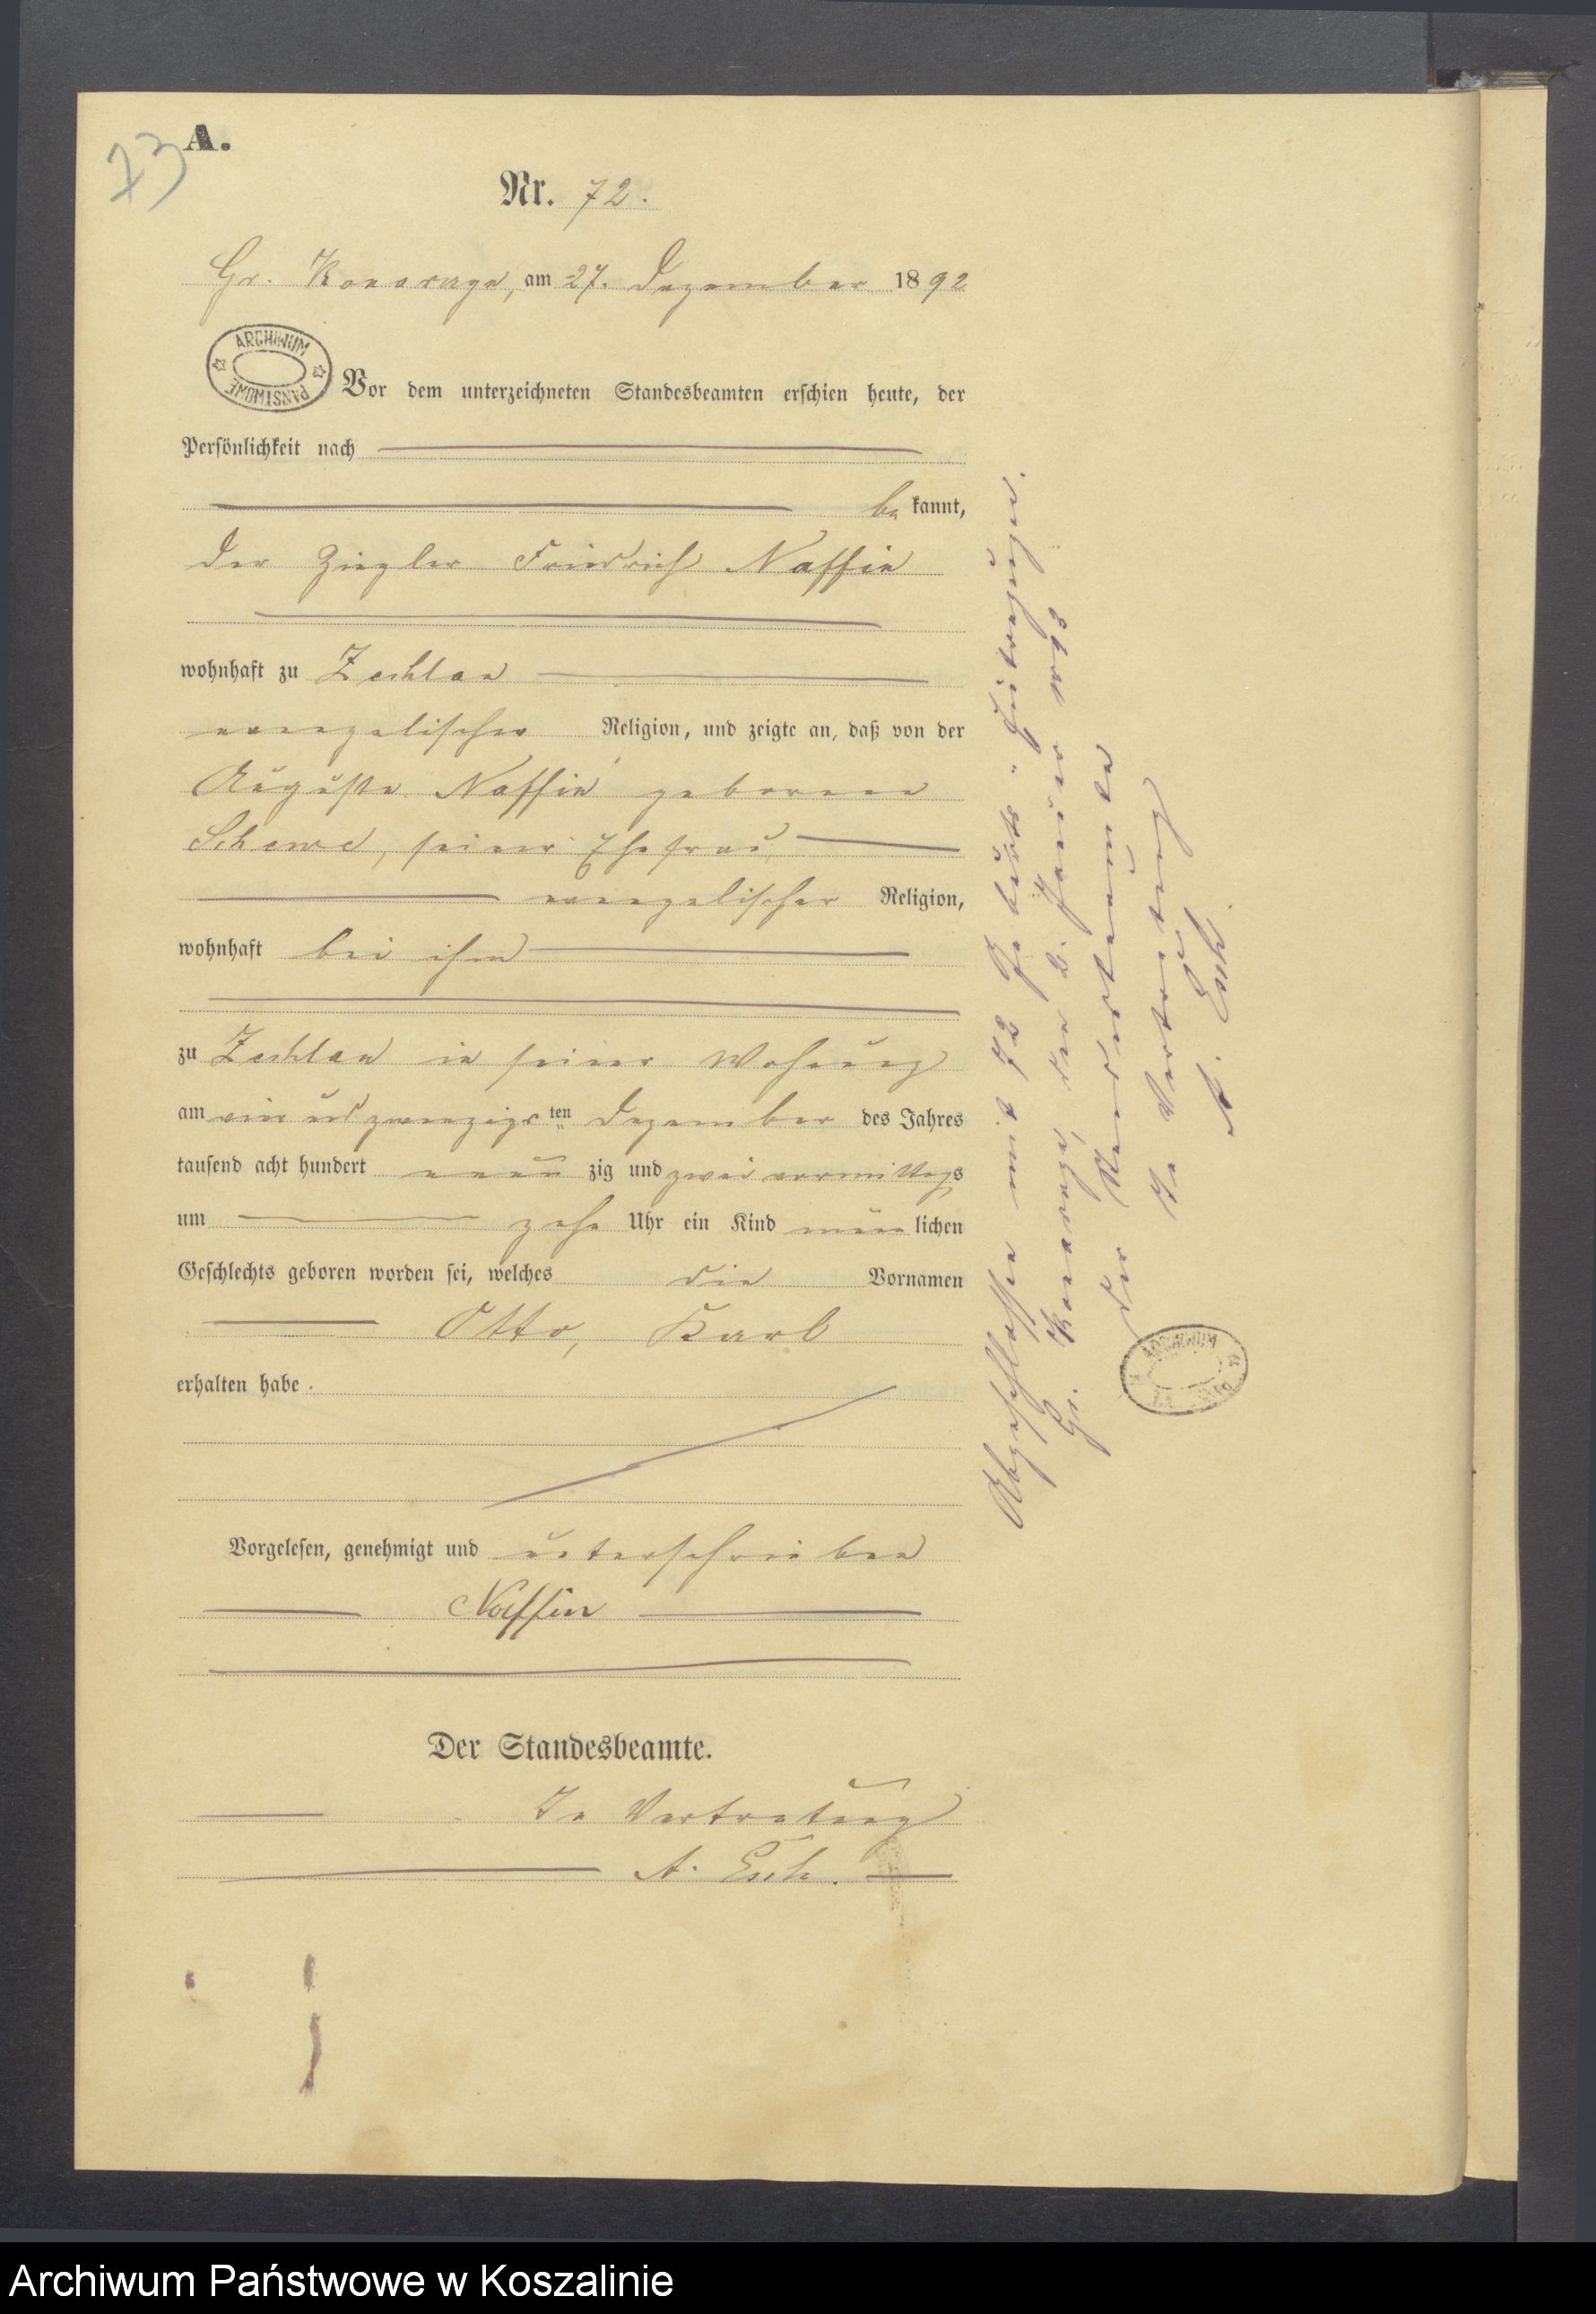 73
A.
Nr. 72.
Gr. Konarzyn, am 27. Dezember 1892
ARCHIWUM PAŃSTWOWE
Vor dem unterzeichneten Standesbeamten erschien heute, der
Persönlichkeit nach
be kannt,
der Ziegler Friedrich Naffin
wohnhaft zu Zechlau
evangelischer Religion, und zeigte an, daß von der
Auguste Naffin geborene
Schewe, seiner Ehefrau,
evangelischer Religion,
wohnhaft bei ihm
zu Zechlau in seiner Wohnung
am ein und zwanzigsten Dezember des Jahres
tausend acht hundert neun zig und zwei vormittags
um zehn Uhr ein Kind männlichen
Geschlechts geboren worden sei, welches die Vornamen
Otto, Karl
erhalten habe.
Vorgelesen, genehmigt und unterschrieben
Naffin
Der Standesbeamte.
In Vertretung
A. Esch.
Abgeschlossen mit 72 Geburts-Eintragungen.
Gr. Konarzyn, den 2. Januar 1893
Der Standesbeamte
In Vertretung
A. Esch.
ARCHIWUM
Archiwum Państwowe w Koszalinie